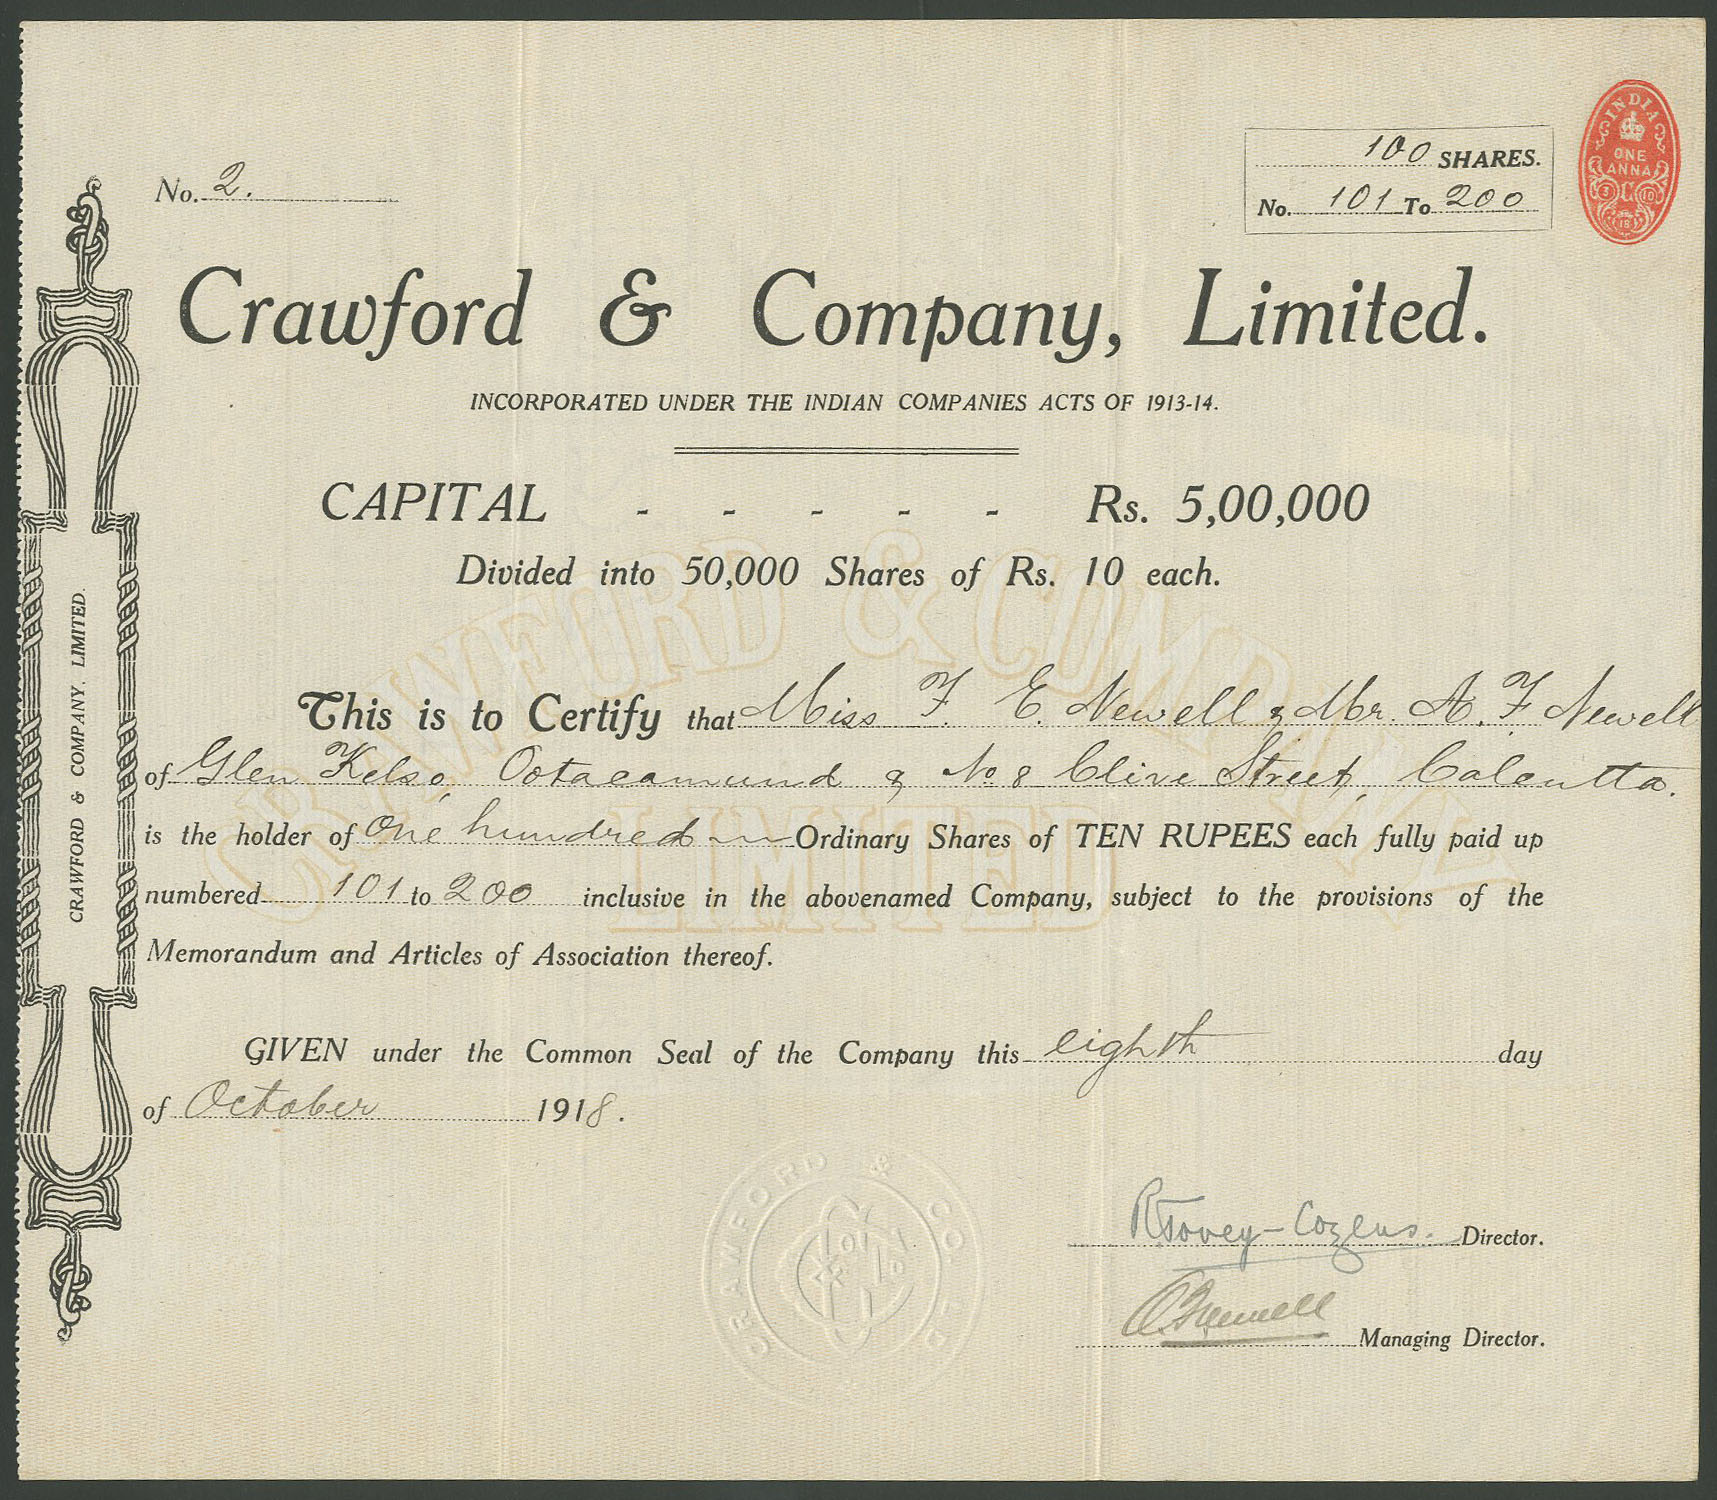 No. 2.
100 SHARES.
No. 101 To 200
INDIA
ONE
ANNA
3 10
18
Crawford & Company, Limited.
INCORPORATED UNDER THE INDIAN COMPANIES ACTS OF 1913-14.
CAPITAL - - - - - Rs. 5,00,000
Divided into 50,000 Shares of Rs. 10 each.
CRAWFORD & COMPANY
LIMITED
CRAWFORD & COMPANY, LIMITED.
This is to Certify that Miss F. E. Newell & Mr. A. F. Newell
of Glen Kelso, Ootacamund & No 8 Clive Street, Calcutta.
is the holder of One hundred Ordinary Shares of TEN RUPEES each fully paid up
numbered 101 to 200 inclusive in the abovenamed Company, subject to the provisions of the
Memorandum and Articles of Association thereof.
GIVEN under the Common Seal of the Company this eighth day
of October 1918.
CRAWFORD & CO. LD
Tovey-Cozens. Director.
Managing Director.